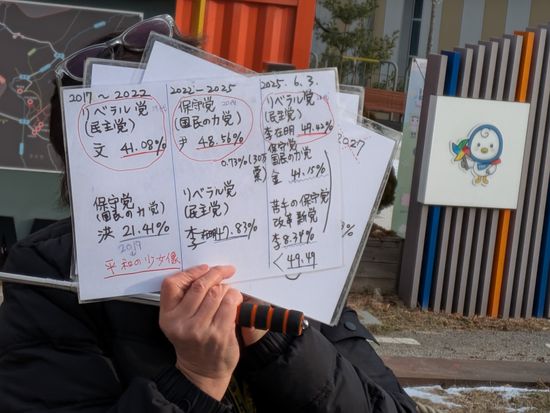 2017～2022
リベラル党
(民主党)
文 41.08%
保守党
(国民の力党)
洪 21.41%
2017
平和の少女像
2022-2025
保守党
(国民の力党)
尹 48.56%
0.73%(30万
票)
リベラル党
(民主党)
李在明47.83%
2025. 6. 3.
リベラル党
(民主党)
李在明 49.42%
保守党
国民の力党
金 41.15%
若手の保守党
改革新党
李 8.34%
< 49.49
27
%